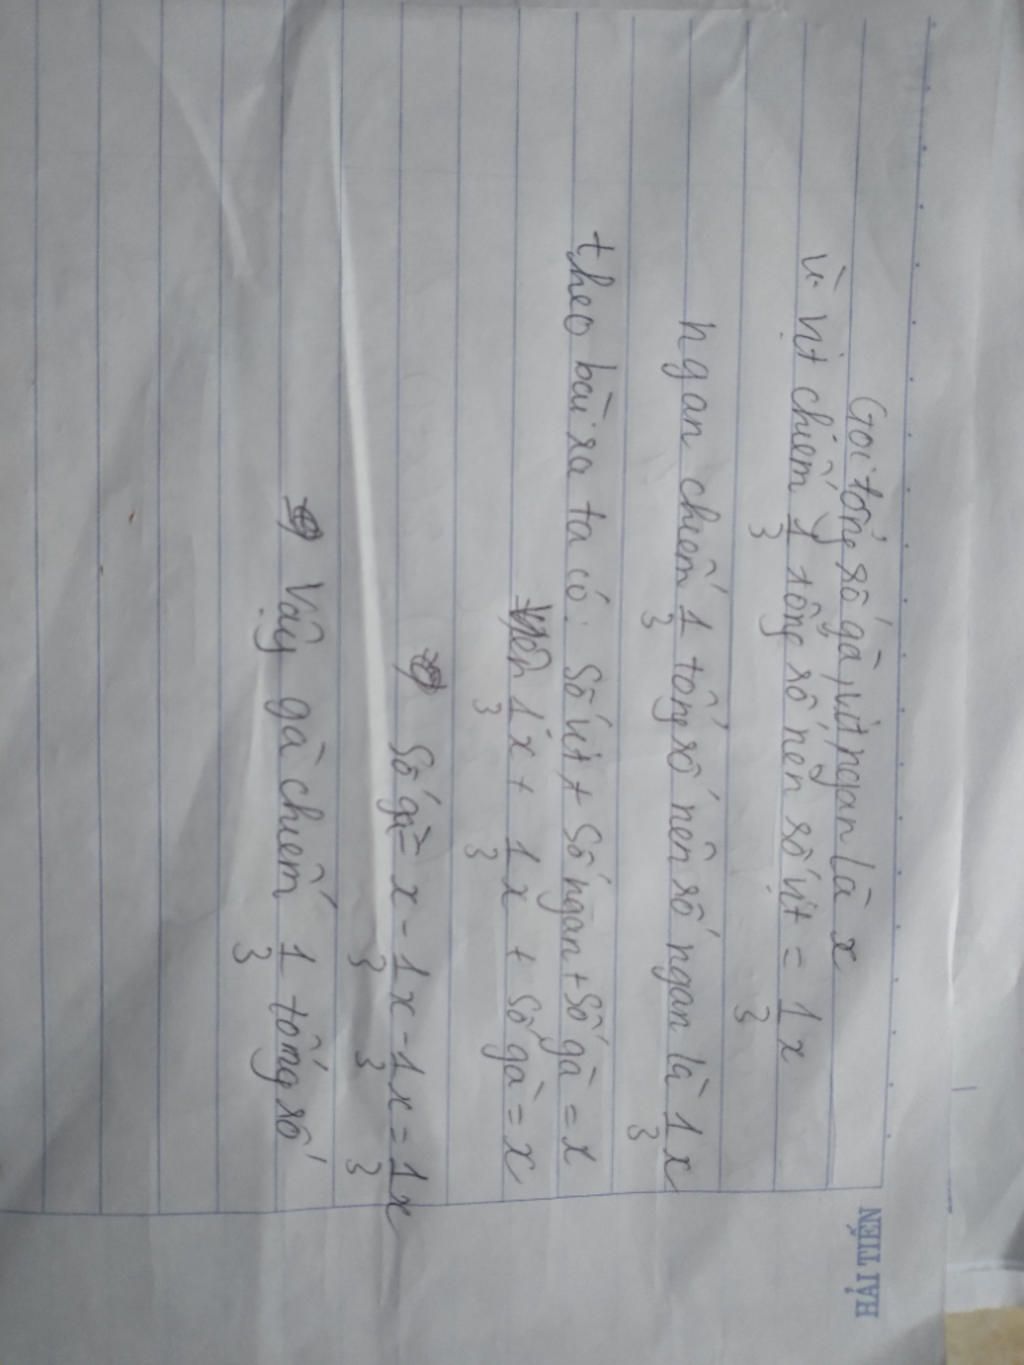 HẢI TIẾN
Gọi tổng số gà, vịt, ngan là x
Vì vịt chiếm 1/3 tổng số nên số vịt = 1/3 x
ngan chiếm 1/3 tổng số nên số ngan là 1/3 x
theo bài ra ta có: Số vịt + Số ngan + Số gà = x
nên 1/3 x + 1/3 x + Số gà = x
Số gà = x - 1/3 x - 1/3 x = 1/3 x
Vậy gà chiếm 1/3 tổng số